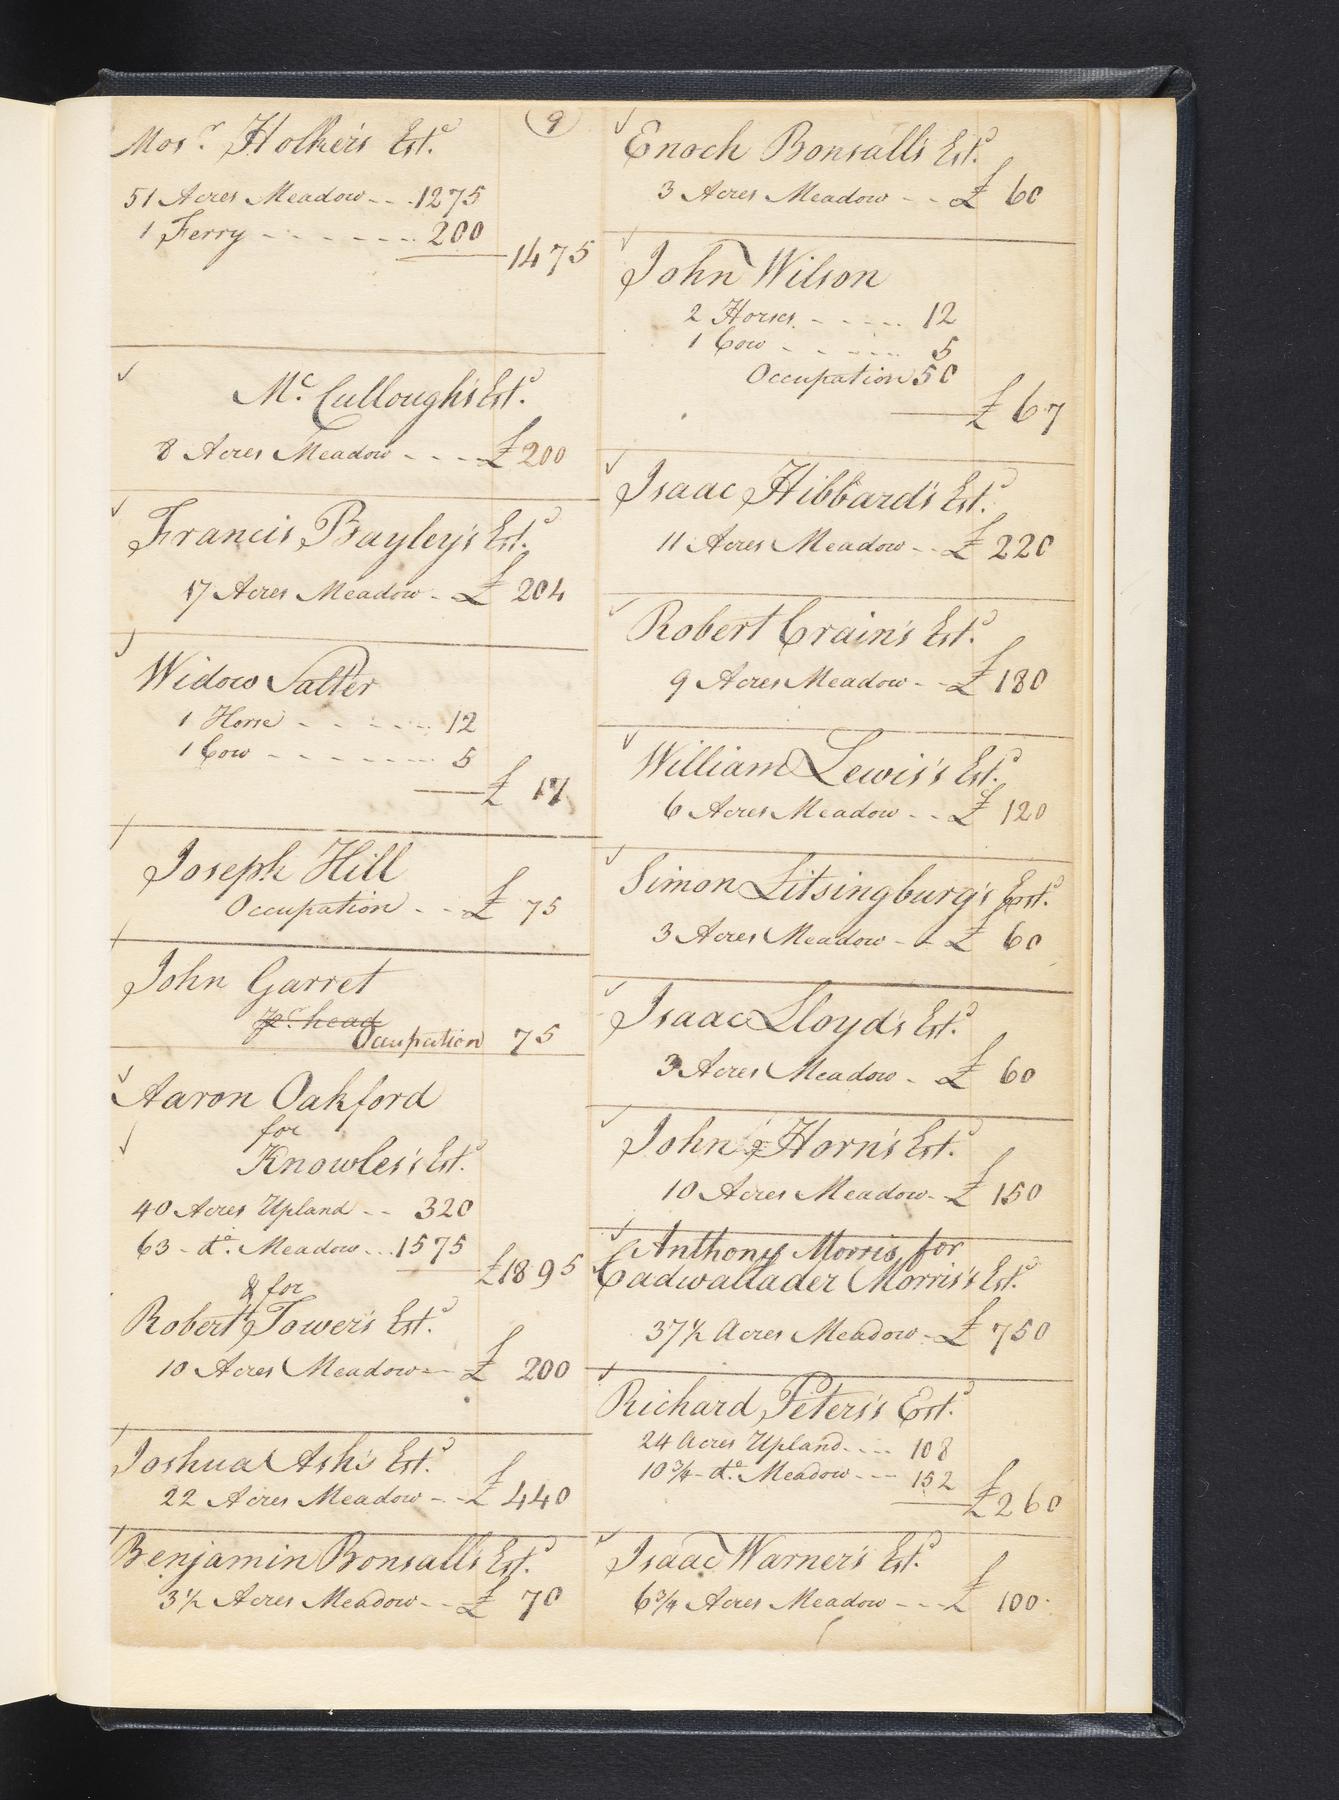 9
Mosr. Holker's Estd.
51 Acres Meadow - - . 1275
1 Ferry - - - - - - . 200
1475
Mc. Cullough's Estd.
8 Acres Meadow - - - - £ 200
Francis Bayley's Estd.
17 Acres Meadow - £ 204
Widow Salter
1 Horse - - - - - - 12
1 Cow - - - - - - - 5
£ 17
Joseph Hill
Occupation - - £ 75
John Garret
pr. head
Occupation 75
Aaron Oakford
for
Knowles's Estd.
40 Acres Upland - - 320
63 - do. Meadow . . . 1575
£1895
& for
Robert Tower's Estd.
10 Acres Meadow - - £ 200
Joshua Ash's Estd.
22 Acres Meadow - - £ 440
Benjamin Bonsall's Estd.
3 1/2 Acres Meadow - - £ 70
Enoch Bonsall's Estd.
3 Acres Meadow - - £ 60
John Wilson
2 Horses - - - - . . 12
1 Cow - - - . . . 5
Occupation 50
£ 67
Isaac Hibbard's Estd.
11 Acres Meadow - - £ 220
Robert Crain's Estd.
9 Acres Meadow - - £ 180
William Lewis's Estd.
6 Acres Meadow - - £ 120
Simon Litsingburg's Estd.
3 Acres Meadow - - £ 60
Isaac Lloyd's Estd.
3 Acres Meadow - £ 60
John Horn's Estd.
10 Acres Meadow - £ 150
Anthony Morris, for
Cadwallader Morris's Estd.
37 1/2 Acres Meadow - £ 750
Richard Peters's Estd.
24 Acres Upland - . - - 108
10 3/4 - do. Meadow - - - 152
£260
Isaac Warner's Estd.
6 3/4 Acres Meadow - - - £ 100